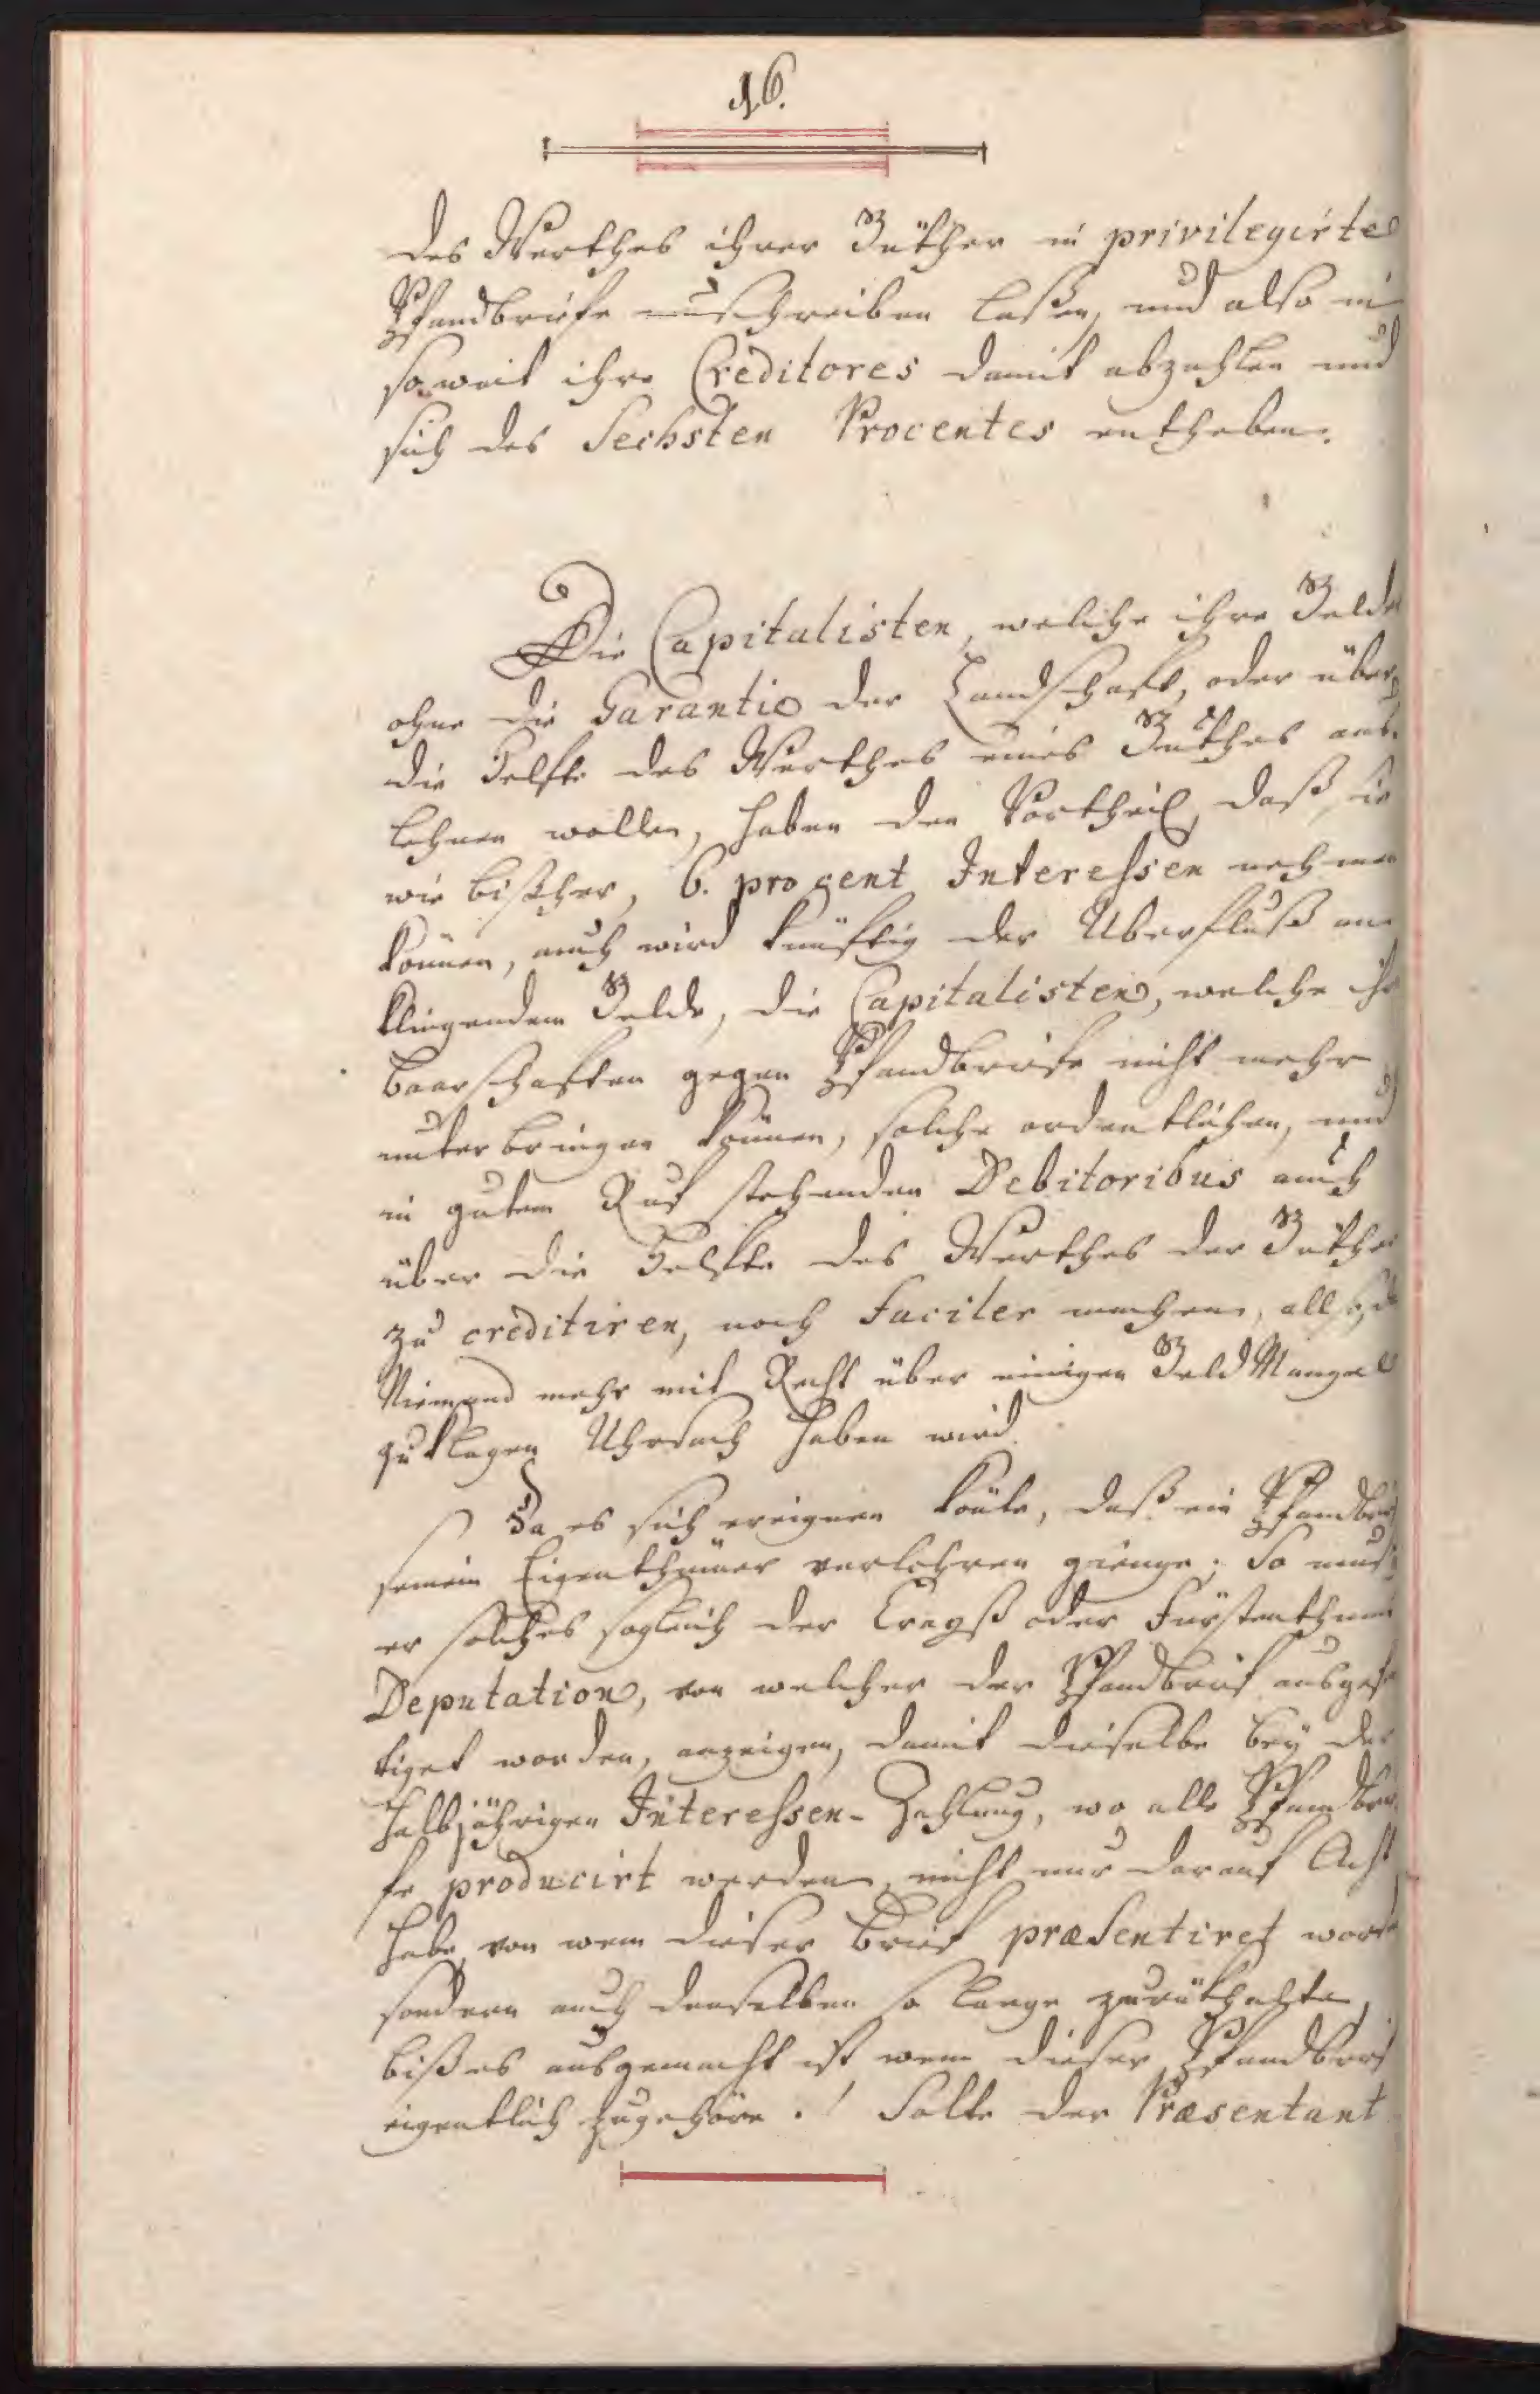 16.
des Werthes ihrer Güther in privilegirte
Pfandbriefe umschreiben laßen, und also in
so weit ihre Creditores damit abzahlen und
sich des Sechsten Procentes entheben.
Die Capitalisten, welche ihre Gelder
ohne die Garantie der Landschaft, oder über
die Helfte des Werthes eines Guthes aus-
lehnen wollen, haben den Vortheil, daß sie
wie bißher, 6. pro cent Interessen nehmen
können, auch wird künftig der Uberfluß an
klingendem Gelde, die Capitalisten, welche ihre
Baarschaften gegen Pfandbriefe nicht mehr
unterbringen können, solche ordentlichen, und
in gutem Ruf stehenden Debitoribus auch
über die Helfte des Werthes der Güther
zu creditiren, noch faciler machen, allso, daß
Niemand mehr mit Recht über einigen Geld Mangel
zu klagen Uhrsach haben wird.
Da es sich ereignen könte, daß ein Pfandbrief
seinem Eigenthümer verlohren gienge; So muß
er solches sogleich der Creyß oder Fürstenthums
Deputation, von welcher der Pfandbrief ausgefer
tiget worden, anzeigen, damit dieselbe bey der
halbjährigen Interessen-Zahlung, wo alle Pfandbrie-
fe producirt werden, nicht nur darauf Acht
habe, von wem dieser Brief præsentiret worden
sondern auch denselben so lange zurükhalte,
biß es ausgemacht ist, wem dieser Pfandbrief
eigentlich zugehöre. Solte der Præsentant